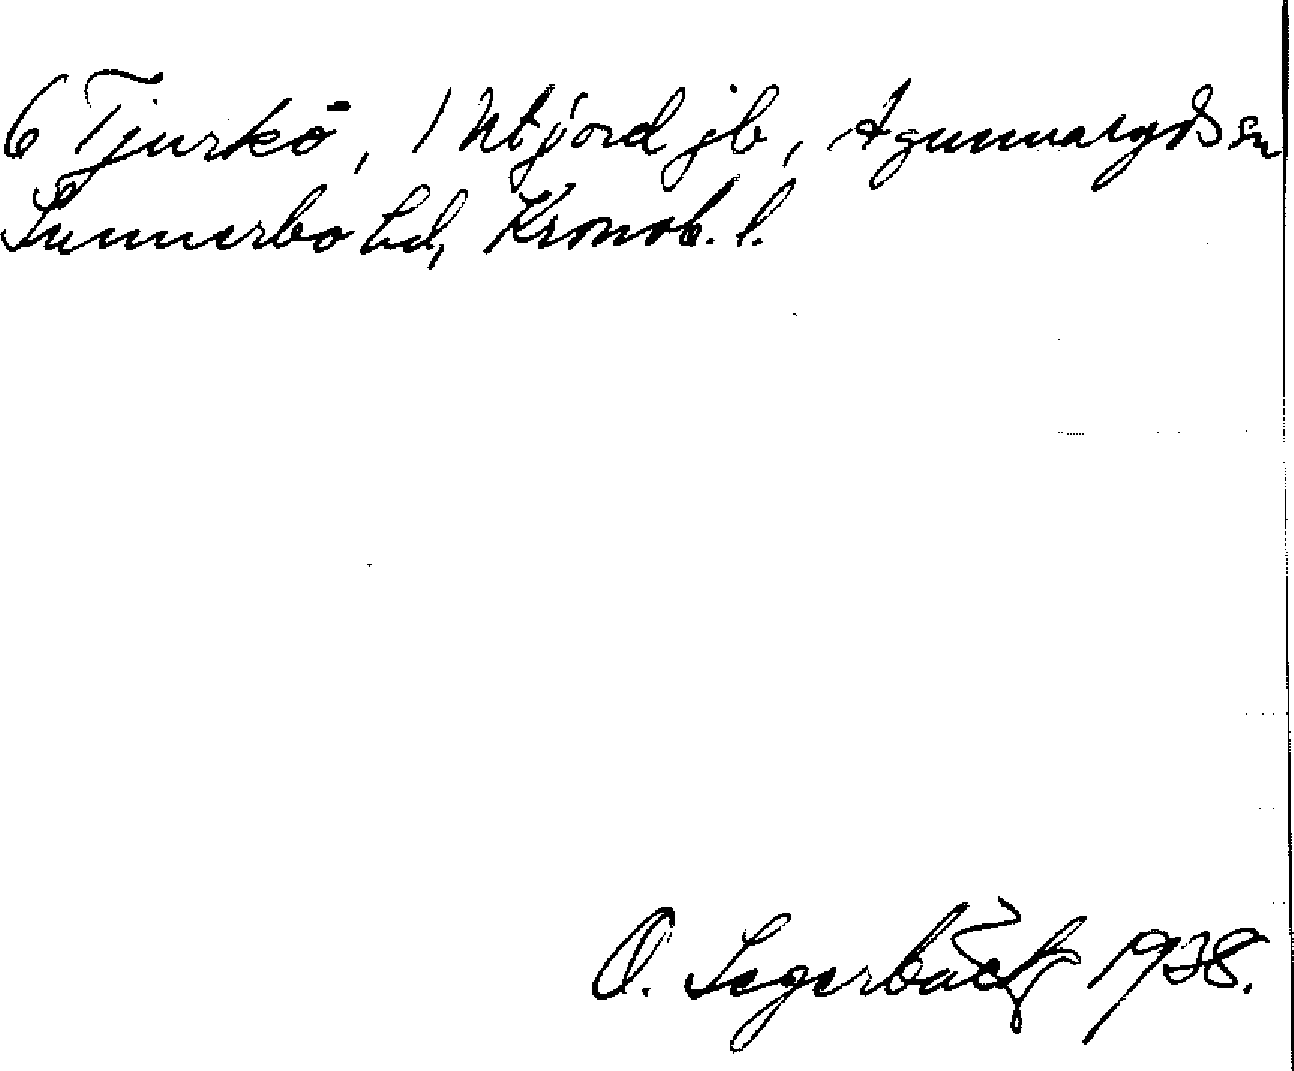 6 Tjurkö, 1 Utjord jb, Agunnaryds sn
Sunnerbo hd, Kronob. l.
O. Segerbäck 1938.